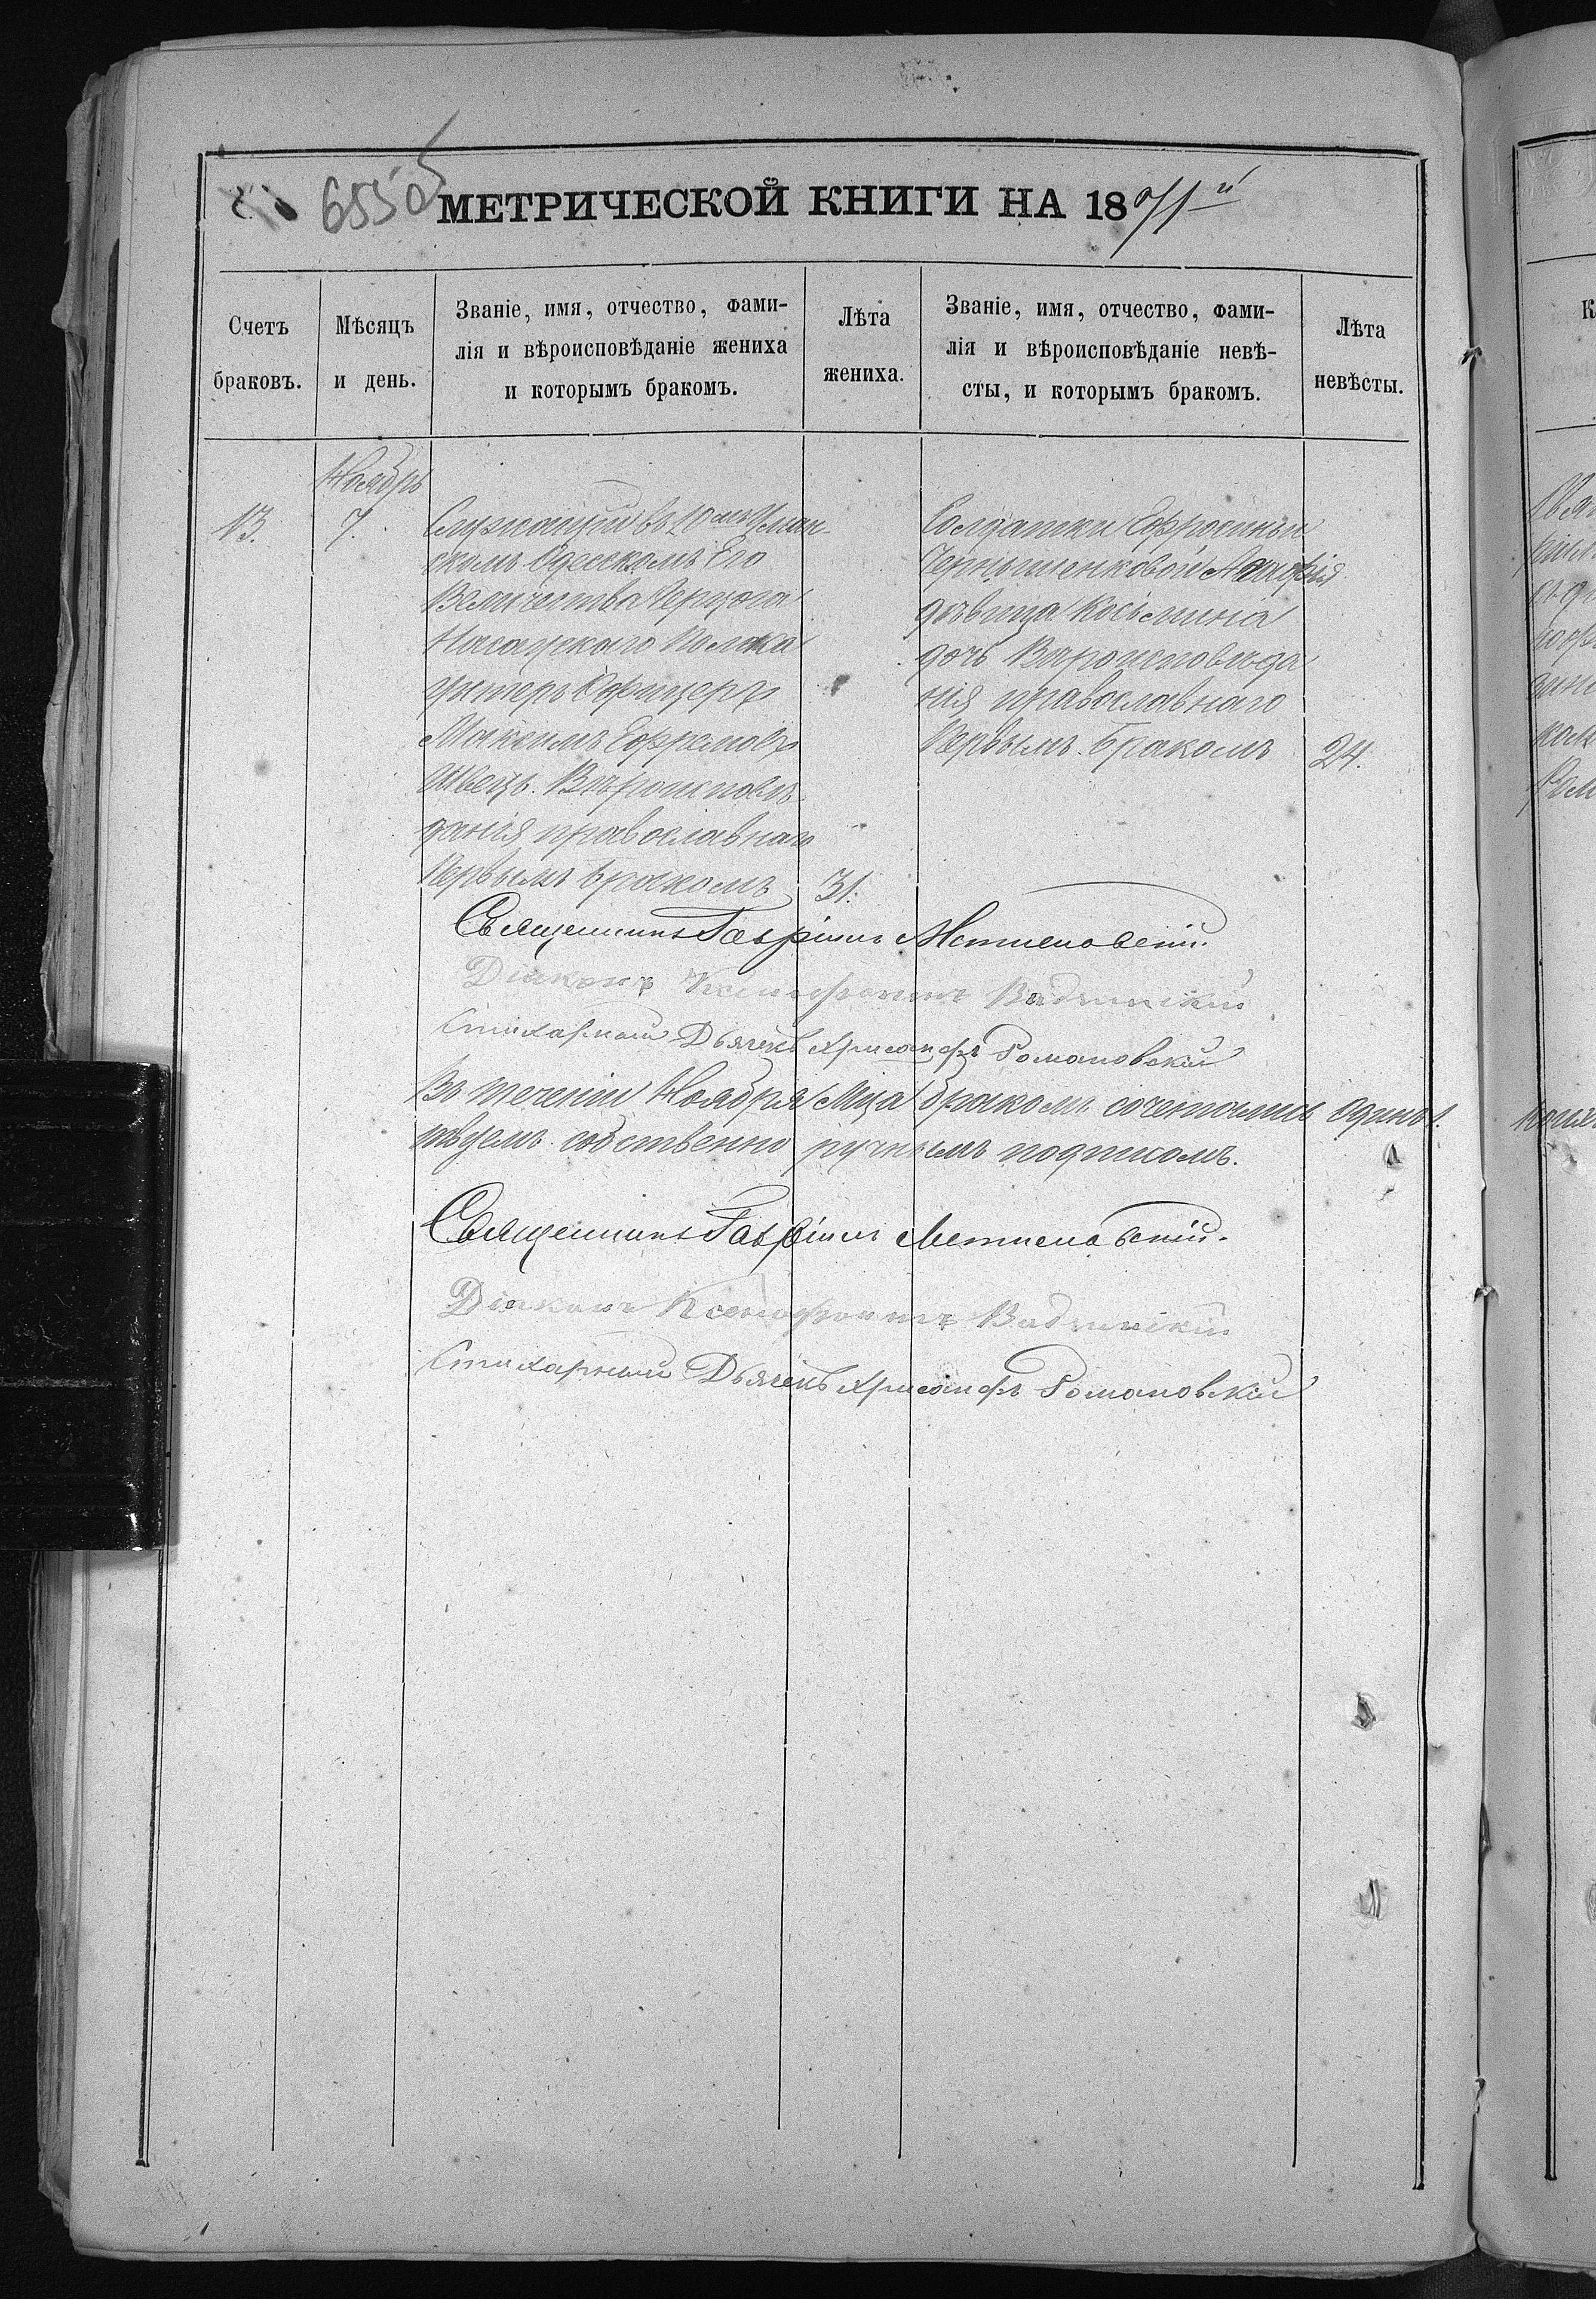 6550
МЕТРИЧЕСКОЙ КНИГИ НА 1871й
Счетъ браковъ.
Мѣсяцъ и день.
Званіе, имя, отчество, фами-
лія и вѣроисповѣданіе жениха
и которымъ бракомъ.
Лѣта жениха.
Званіе, имя, отчество, фами-
лія и вѣроисповѣданіе невѣ-
сты, и которымъ бракомъ.
Лѣта невѣсты.
Ноябрь
13.
7.
Служащій въ 10мъ Улан-
скомъ Одесскомъ Его
Величества Герцога
Насаускаго Полка
унтеръ Офицеръ
Максимъ Ефремовъ
Швецъ. Вѣроисповѣ-
данія православнаго
Первымъ бракомъ
31.
Солдатки Ефросиньи
Чернышенковой
дѣвица Косьмина
дочь Вѣроисповѣда
нія православнаго
Первымъ бракомъ
24.
Священникъ Гавріилъ
Діаконъ Ксенофонтъ
Стихарный Дьячекъ Хрисанфъ Романовскій
Въ теченіи Ноября Мца бракомъ сочетались Одинъ 1.
твуемъ собственно ручнымъ подписомъ.
Священникъ Гавріилъ
Діаконъ Ксенофонтъ
Стихарный Дьячекъ Хрисанфъ Романовскій